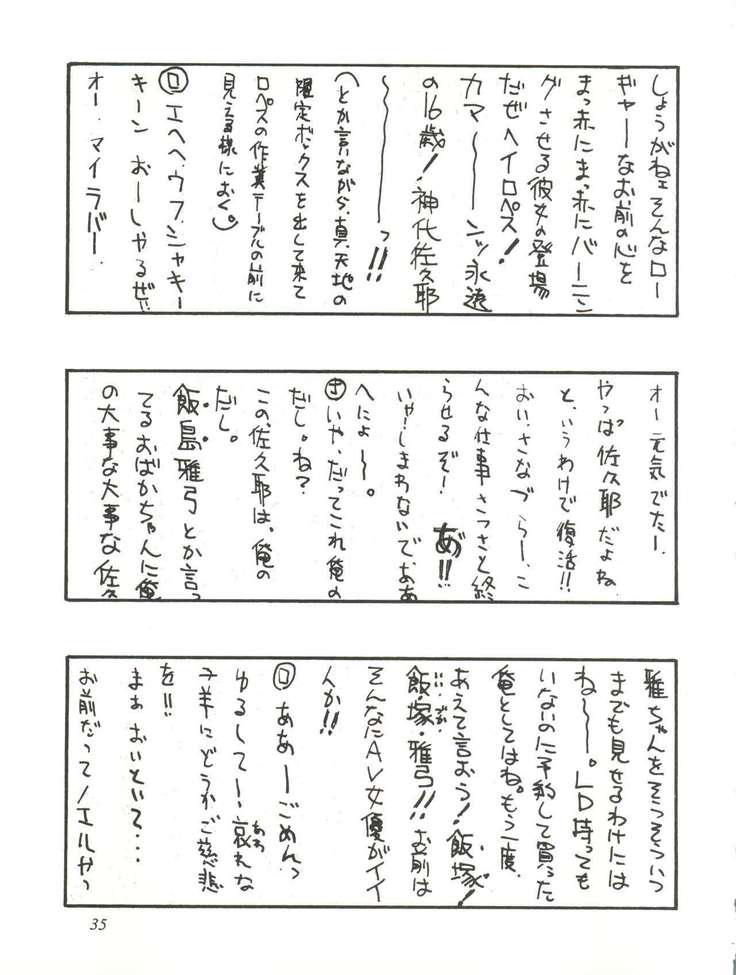 しょうがねェそんなロー
ギャーなお前の心を
まっ赤にまっ赤にバーニン
グさせる彼女の登場
だぜヘイロペス!
カマ〜〜〜ーンッ永遠
の16歳!神代佐久耶
〜〜〜〜〜〜っ!!
(とか言ながら真.天地の
限定ボックスを出して来て
ロペスの作業テーブルの前に
見える様におく。)
ロ エヘヘ.ウフ.シャキー
キーン おーしゃるぜド
オー.マイラバー.
オー元気でたー.
やっぱ佐久耶だよね.
と、いうわけで復活!!
おい、さなづらー、こ
んな仕事さっさと終
らせるぞ! あ゛!!
いゃーしまわないでぉぉあ
へにょ〜。
さ いや、だってこれ俺の
だし。ね?
この、佐久耶は、俺の
だし。
飯島雅弓とか言っ
てるおばかちゃんに俺
の大事な大事な佐久
雅ちゃんをそうそういつ
までも見せるわけには
ね〜〜。LD持っても
いないのに予約して買った
俺としてはね。もう一度.
あえて言おう!飯塚!
飯・塚・雅弓!!お前は
そんなにAV女優がイイ
んか!!
ロ ああーごめんっ
ゆるしてー、哀れな
あわ
子羊にどうかご慈悲
を!!
まぁおいといて・・・
お前だってノエルやっ
35